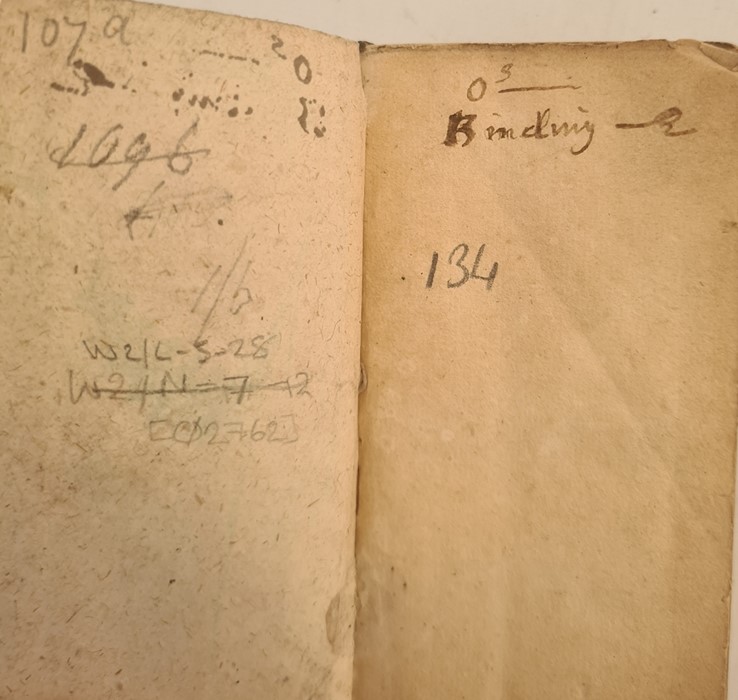 107 a
1696
1/6
W2/L-S-28
W2/N-7-12
[C2762]
0 s
Binding — 2
134